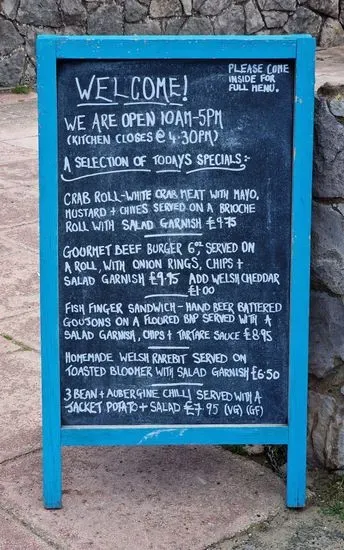 WELCOME!
PLEASE COME
INSIDE FOR
FULL MENU.
WE ARE OPEN 10AM-5PM
(KITCHEN CLOSES @ 4·30PM)
A SELECTION OF TODAYS SPECIALS:-
CRAB ROLL-WHITE CRAB MEAT WITH MAYO,
MUSTARD + CHIVES SERVED ON A BRIOCHE
ROLL WITH SALAD GARNISH £9·75
GOURMET BEEF BURGER 6oz SERVED ON
A ROLL, WITH ONION RINGS, CHIPS +
SALAD GARNISH £9·95 ADD WELSH CHEDDAR
£1·00
FISH FINGER SANDWICH - HAND BEER BATTERED
GOUJONS ON A FLOURED BAP SERVED WITH A
SALAD GARNISH, CHIPS + TARTARE SAUCE £8·95
HOMEMADE WELSH RAREBIT SERVED ON
TOASTED BLOOMER WITH SALAD GARNISH £6·50
3 BEAN + AUBERGINE CHILLI SERVED WITH A
JACKET POTATO + SALAD £7.95 (VG) (GF)